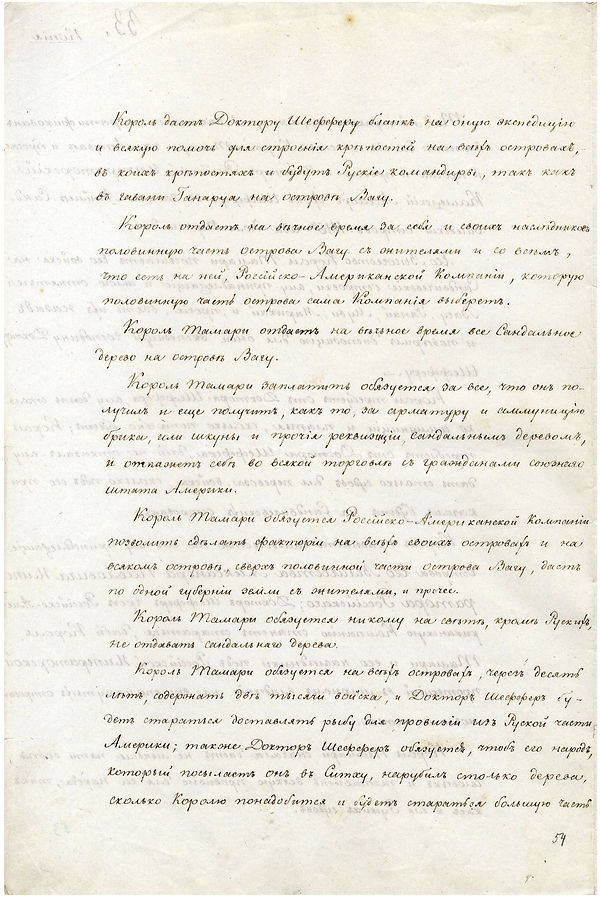 33.
Копія
Король дастъ Доктору Шефферу бланкъ на оную экспедицію
и всякую помочь для строенія крѣпостей на всѣхъ островахъ,
въ коихъ крѣпостяхъ и будутъ Рускіе командиры, такъ какъ
въ гавани Ганаруа на островѣ Вагу.
Король отдастъ на вѣчное время за себя и своихъ наслѣдниковъ
половинную часть острова Вагу съ жителями и со всѣмъ,
что есть на ней, Россійско-Американской Компаніи, которую
половинную часть острова сама Компанія выберетъ.
Король Тамари отдастъ на вѣчное время все Сандальное
дерево на островѣ Вагу.
Король Тамари заплатить обязуется за все, что онъ по-
лучилъ и еще получитъ, какъ то, за арматуру и аммуницію
брика, или шкуны и прочія реквизіціи, сандальнымъ деревомъ,
и откажетъ себѣ во всякой торговлѣ съ гражданами союзнаго
штата Америки.
Король Тамари обязуется Россійско-Американской Компаніи
позволить сдѣлать факторіи на всѣхъ своихъ островахъ и на
всякомъ островѣ, сверхъ половинной части острова Вагу, дать
по одной губерніи земли съ жителями, и прочее.
Король Тамари обязуется никому на свѣтѣ, кромѣ Рускихъ,
не отдавать сандальнаго дерева.
Король Тамари обязуется на всѣхъ островахъ, чрезъ десять
лѣтъ, содержать двѣ тысячи войска, и Докторъ Шефферъ бу-
детъ стараться доставлять рыбу для провизіи изъ Руской части
Америки; также Докторъ Шефферъ обязуется, чтобъ его народъ,
который посылаетъ онъ въ Ситху, нарубилъ столько дерева,
сколько Королю понадобится и будетъ стараться большую часть
54